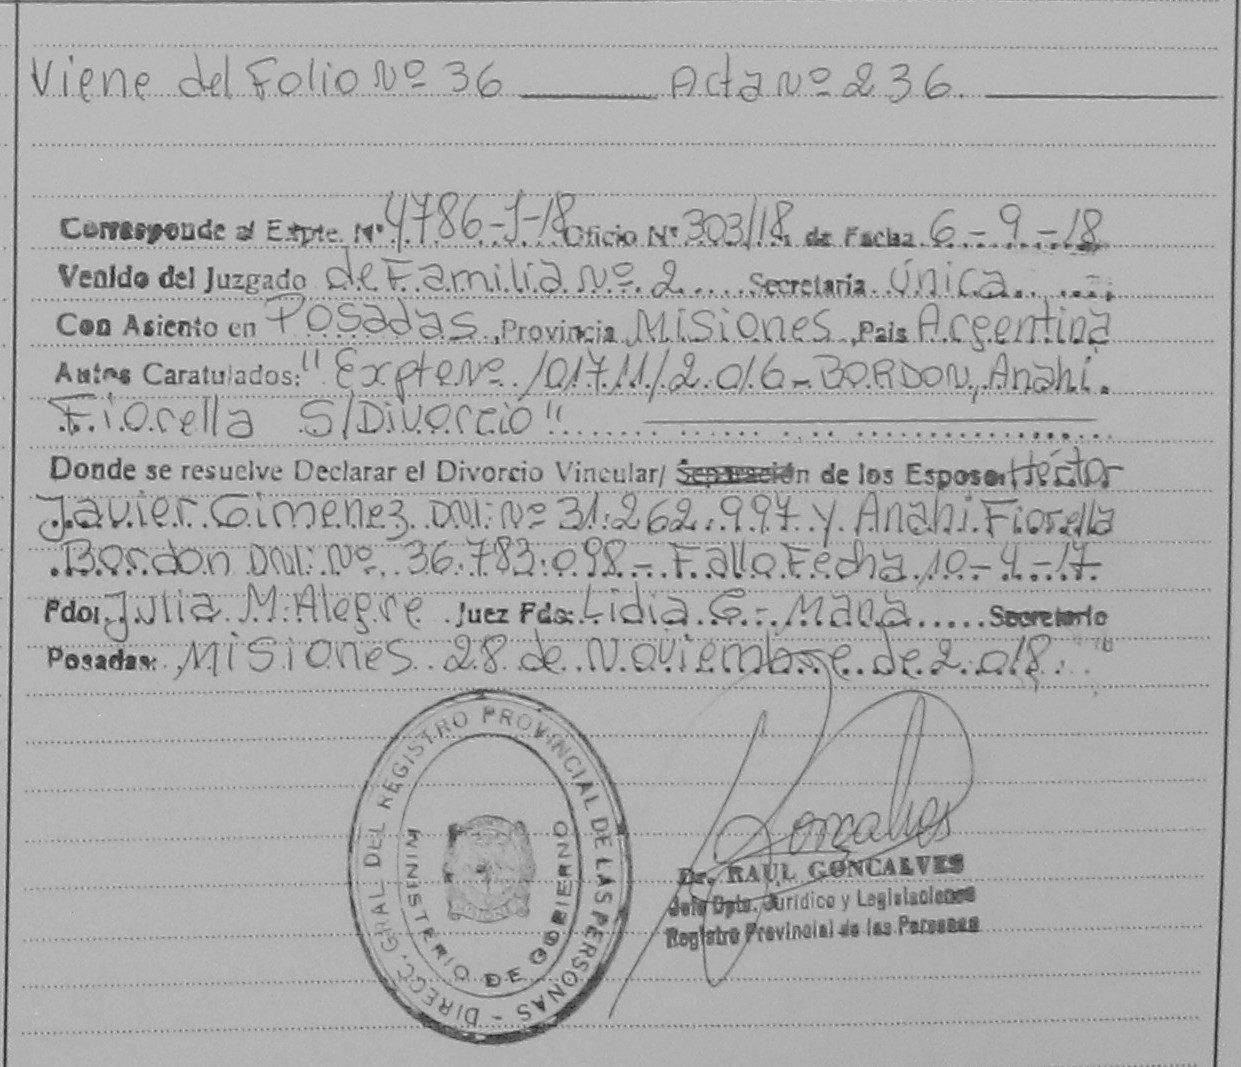 Viene del Folio Nº 36 ______ Acta Nº 236. ______
Corresponde al Expte. Nº 4786-J-18 Oficio Nº 303/18, de Fecha 6-9-18
Venido del Juzgado de Familia Nº 2 Secretaria única
Con Asiento en Posadas, Provincia Misiones, Pais Argentina
Autos Caratulados: "Expte Nº 101711/2.016 - BORDON, Anahí.
Fiorella S/Divorcio"
Donde se resuelve Declarar el Divorcio Vincular/ Separación de los Esposos Héctor
Javier Gimenez DNI: Nº 31.262.997 y Anahi Fiorella
Bordon DNI: Nº 36.783.098 - Fallo Fecha 10-4-17
Fdo: Julia M. Alegre Juez Fdo: Lidia G. Maná Secretario
Posadas: Misiones 28 de Noviembre de 2.018.
DIRECC. GRAL DEL REGISTRO PROVINCIAL DE LAS PERSONAS -
MINISTERIO DE GOBIERNO
Dr. RAUL GONCALVES
Jefe Dpto. Jurídico y Legislaciones
Registro Provincial de las Personas